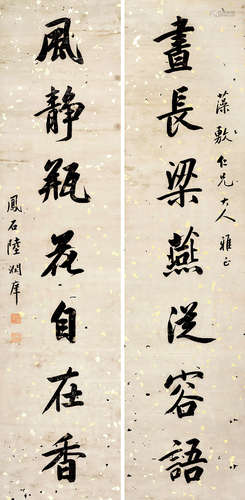 藻敷仁兄大人雅正
晝長梁燕從容語
風靜瓶花自在香
鳳石陸潤庠